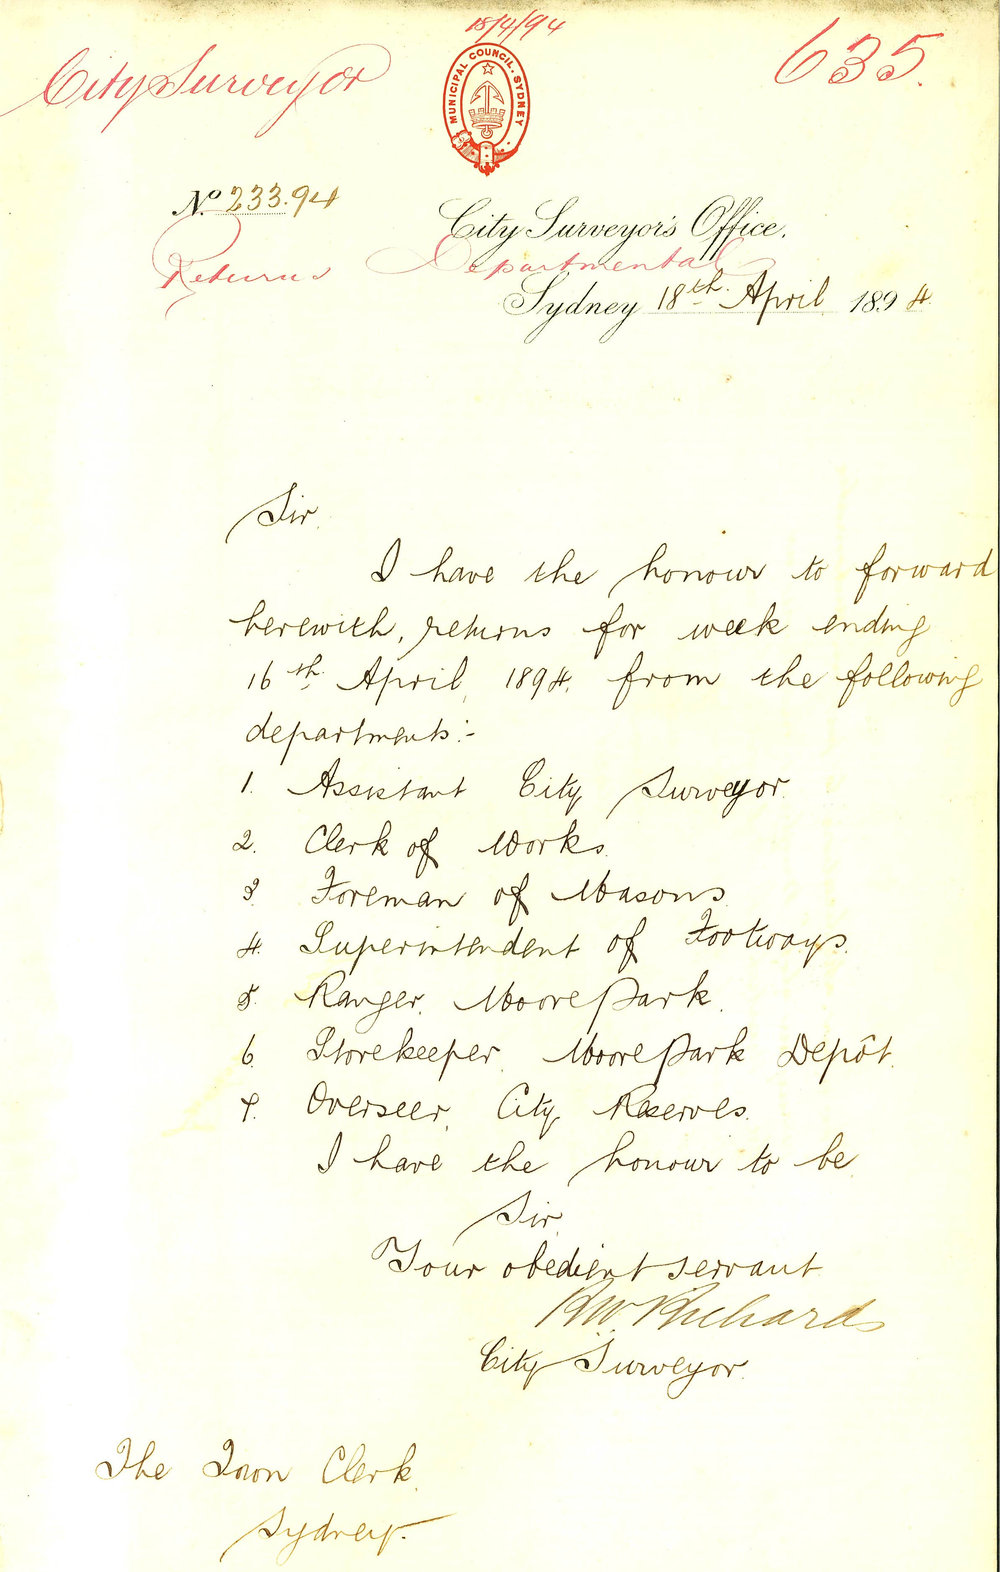 18/4/94
City Surveyor
635.
MUNICIPAL COUNCIL. SYDNEY
No. 233.94
City Surveyor's Office.
Returns Departmental
Sydney 18th April 1894
Sir,
I have the honour to forward
herewith, returns for week ending
16th April, 1894, from the following
departments:-
1. Assistant City Surveyor.
2. Clerk of Works.
3. Foreman of Masons
4. Superintendent of Footways.
5. Ranger, Moore Park.
6. Storekeeper, Moore Park Depôt.
7. Overseer, City Reserves.
I have the honour to be
Sir,
Your obedient servant
R W Richards
City Surveyor.
The Town Clerk.
Sydney.